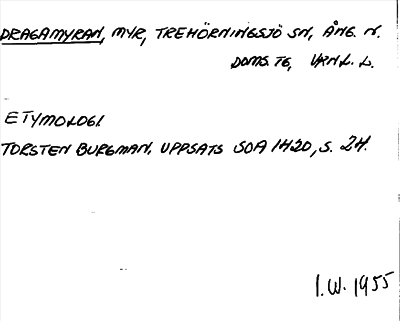 DRAGAMYRAN, MYR, TREHÖRNINGSJÖ SN, ÅNG. N.
DOMS. TG, VRNL. L.
ETYMOLOGI
TORSTEN BURGMAN. UPPSATS SOA 1420, S. 24.
I.W. 1955